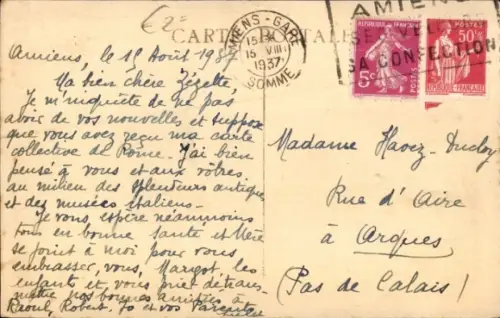 2=
CARTE POSTALE
AMIENS-GARE
15
15 VIII
1937
SOMME
AMIENS
SES VELOURS
SA CONFECTION
REPUBLIQUE FRANÇAISE
5c
POSTES
POSTES
50c
REPUBLIQUE FRANÇAISE
Amiens, le 15 Août 1937
Ma bien chère Zézette,
Je m'inquiète de ne pas
avoir de vos nouvelles et suppose
que vous avez reçu ma carte
collective de Rome. J'ai bien
pensé à vous et aux vôtres
au milieu des splendeurs antiques
et des musées italiens.
Je vous espère néanmoins
tous en bonne santé et Mère
se joint à moi pour vous
embrasser, vous, Margot, les
enfants et vous prier de trans
mettre nos bonnes amitiés à
Raoul, Robert, Jo et vos Parents
Madame Havez-Ducloy
Rue d'Aire
à Arques
(Pas de Calais)